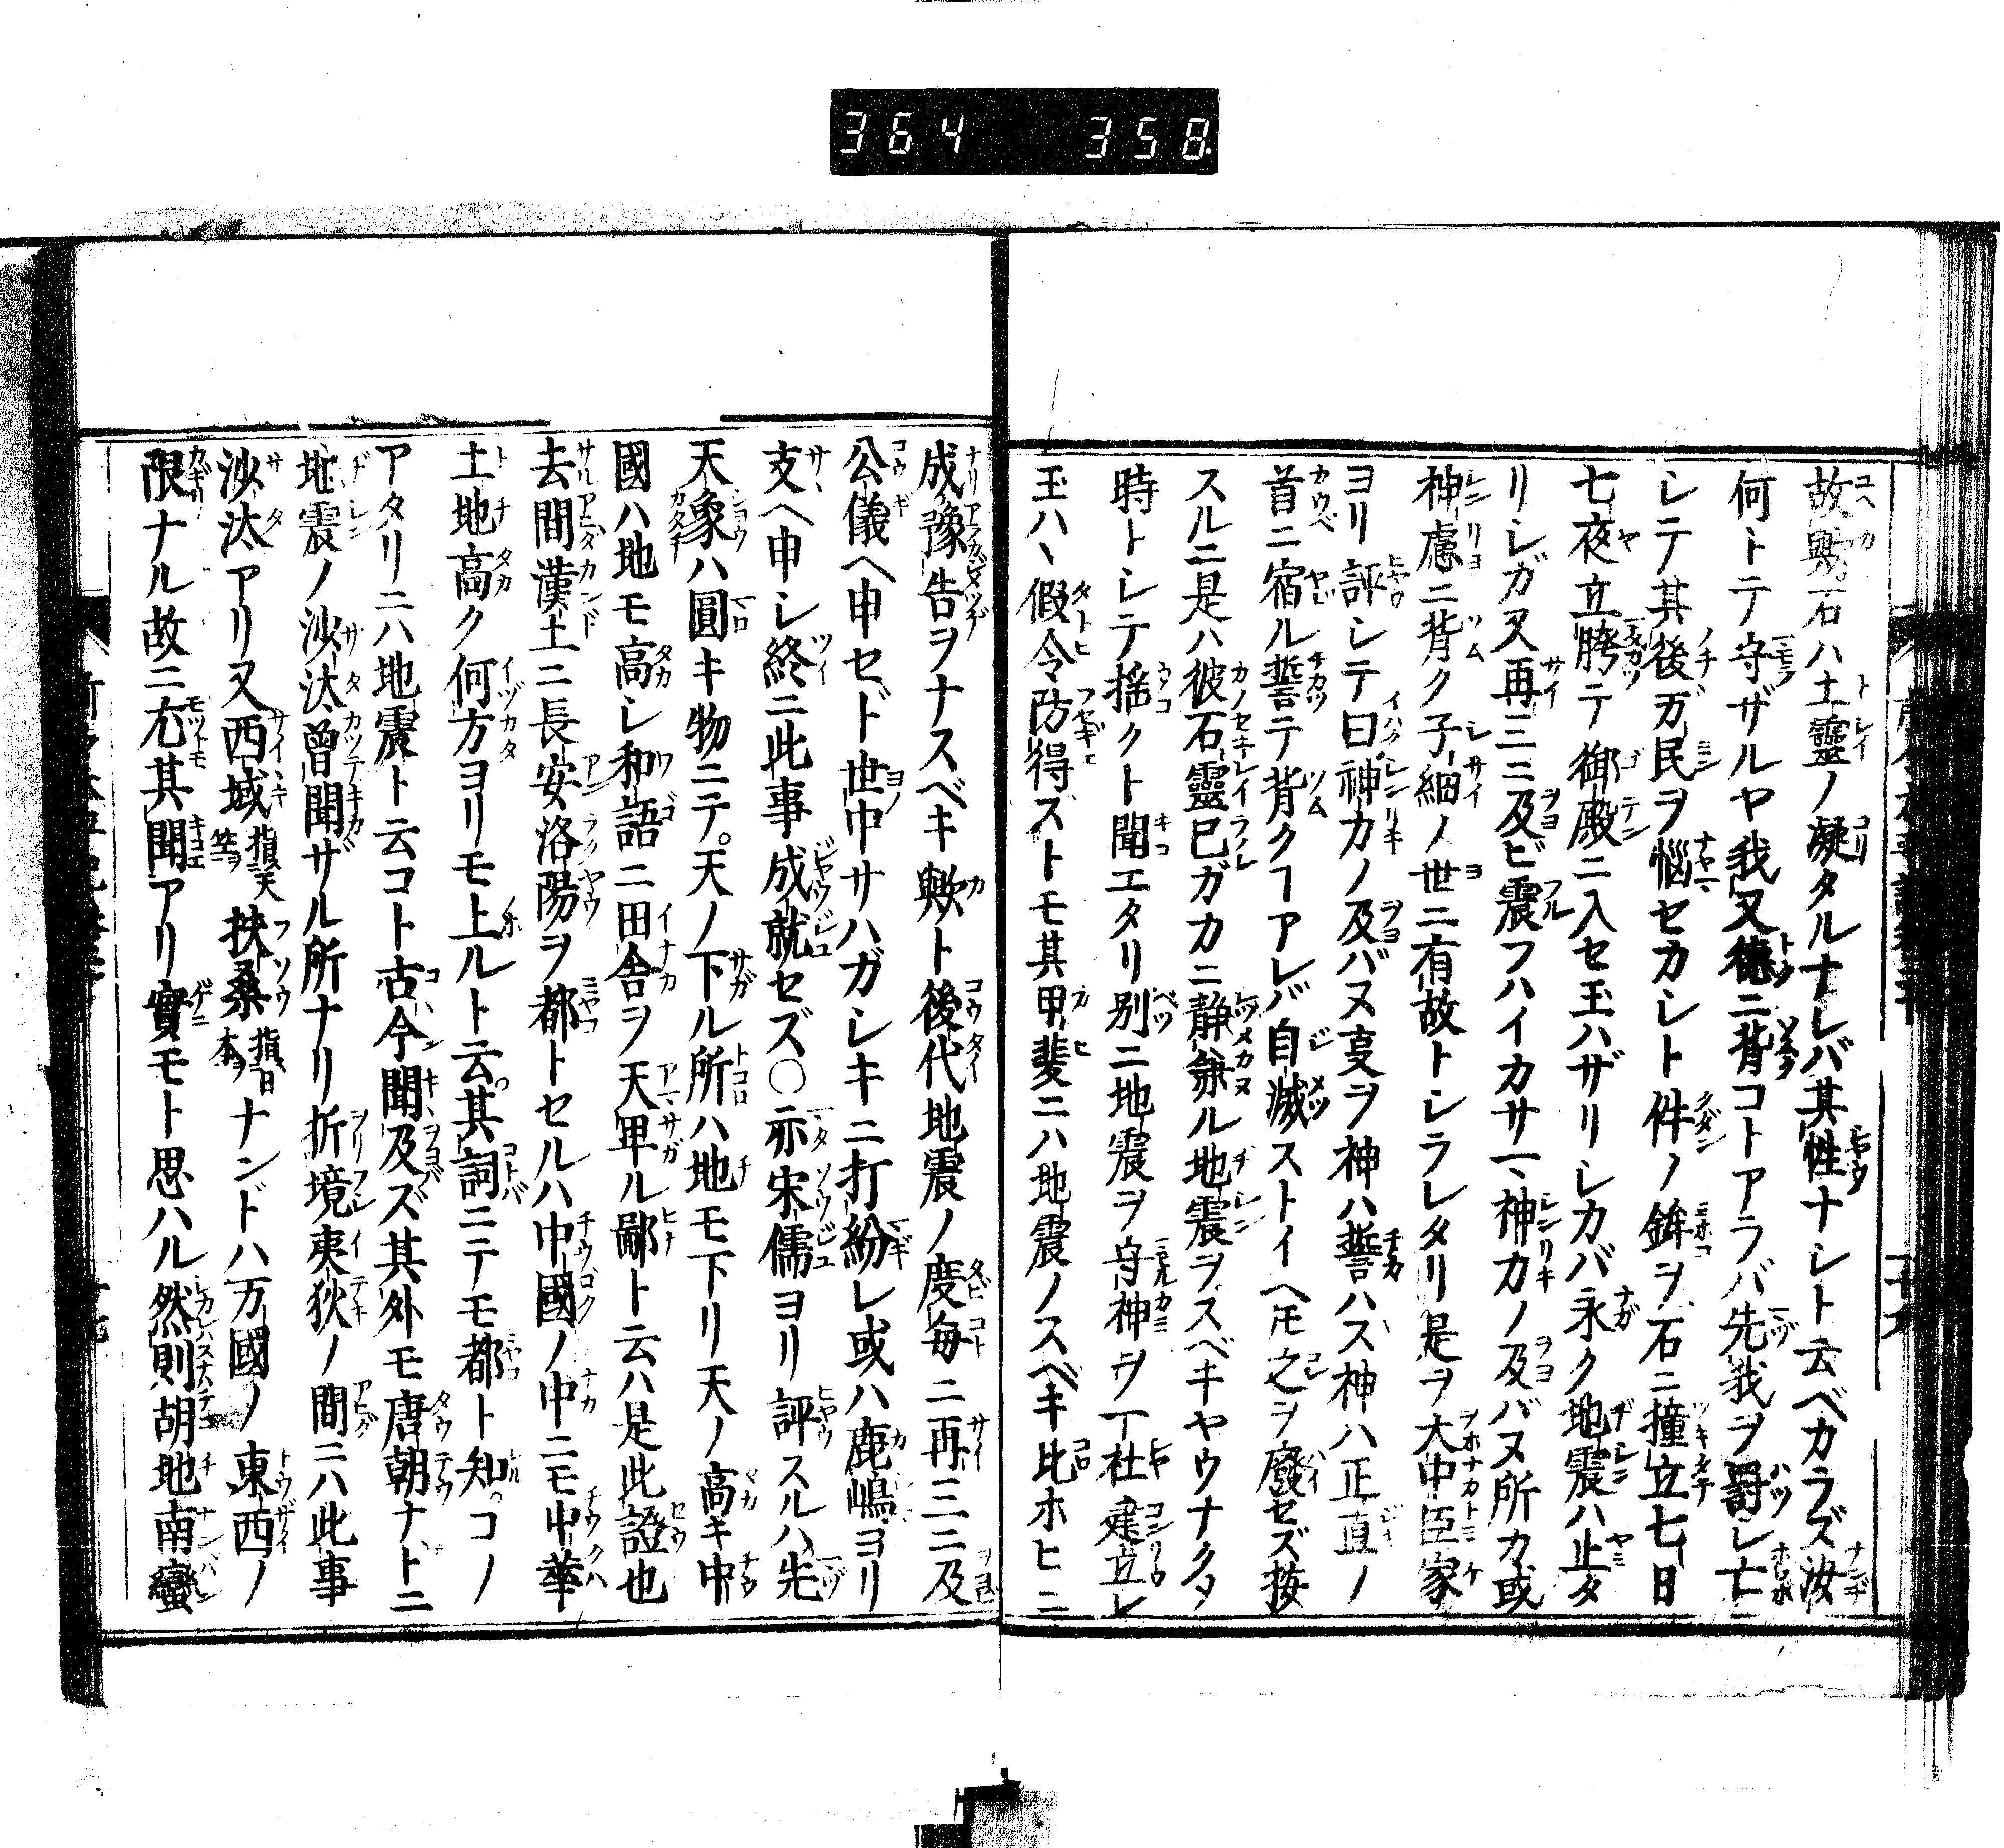 364 358
故歟石ハ土靈ノ凝タルナレバ其性ナシト云ベカラズ汝
何トテ守ザルヤ我又徳ニ背コトアラバ先我ヲ罸シ亡
シテ其後万民ヲ惱セカシト件ノ鉾ヲ石ニ撞立七日
七夜立勝テ御殿ニ入セ玉ハザリシカバ永ク地震ハ止タ
リシガ又再三ニ及ビ震フハイカサマ神力ノ及バヌ所カ或
神慮ニ背ク子細ノ世ニ有故トシラレタリ是ヲ大中臣家
ヨリ評シテ曰神力ノ及バヌ叓ヲ神ハ誓ハス神ハ正直ノ
首ニ宿ル誓テ背クヿアレバ自滅ストイヘ𪜈之ヲ廢セズ按
スルニ是ハ彼石靈已ガカニ静兼ル地震ヲスベキヤウナクタ
時トシテ揺クト聞エタリ別ニ地震ヲ守神ヲ一社建立シ
玉ハヽ假令防得ズトモ其甲斐ニハ地震ノスベキ比ホヒニ
成豫告ヲナスベキ歟ト後代地震ノ度毎ニ再三ニ及
公儀ヘ申セド世中サハガシキニ打紛レ或ハ鹿嶋ヨリ
支ヘ申シ終ニ此事成就セズ○亦宋儒ヨリ評スルハ先
天象ハ圓キ物ニテ天ノ下ル所ハ地モ下リ天ノ高キ中
國ハ地モ高シ和語ニ田舎ヲ天卑ル鄙ト云ハ是此證也
去間漢土ニ長安洛陽ヲ都トセルハ中國ノ中ニモ中華
土地高ク何方ヨリモ上ルト云其詞ニテモ都ト知コノ
アタリニハ地震ト云コト古今聞及ズ其外モ唐朝ナトニ
地震ノ沙汰曾聞ザル所ナリ折境夷狄ノ間ニハ此事
沙汰アリ又西域指天竺ヲ扶桑指日本ヲナンドハ万國ノ東西ノ
限ナル故ニ尤其聞アリ實モト思ハル然則胡地南蠻